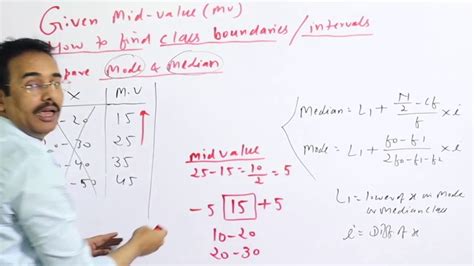 Given Mid-value (mv)
How to find class boundaries / intervals
pare Mode & Median
X M.V
-20 15
-30 25
-40 35
-50 45
midvalue
25-15=10/2=5
-5 15 +5
10-20
20-30
Median = L1 + (N/2 - cf)/f × i
Mode = L1 + (f0-f1)/(2f0-f1-f2) × i
L1 = lower of x in Mode
or Median class
i = Diff of x